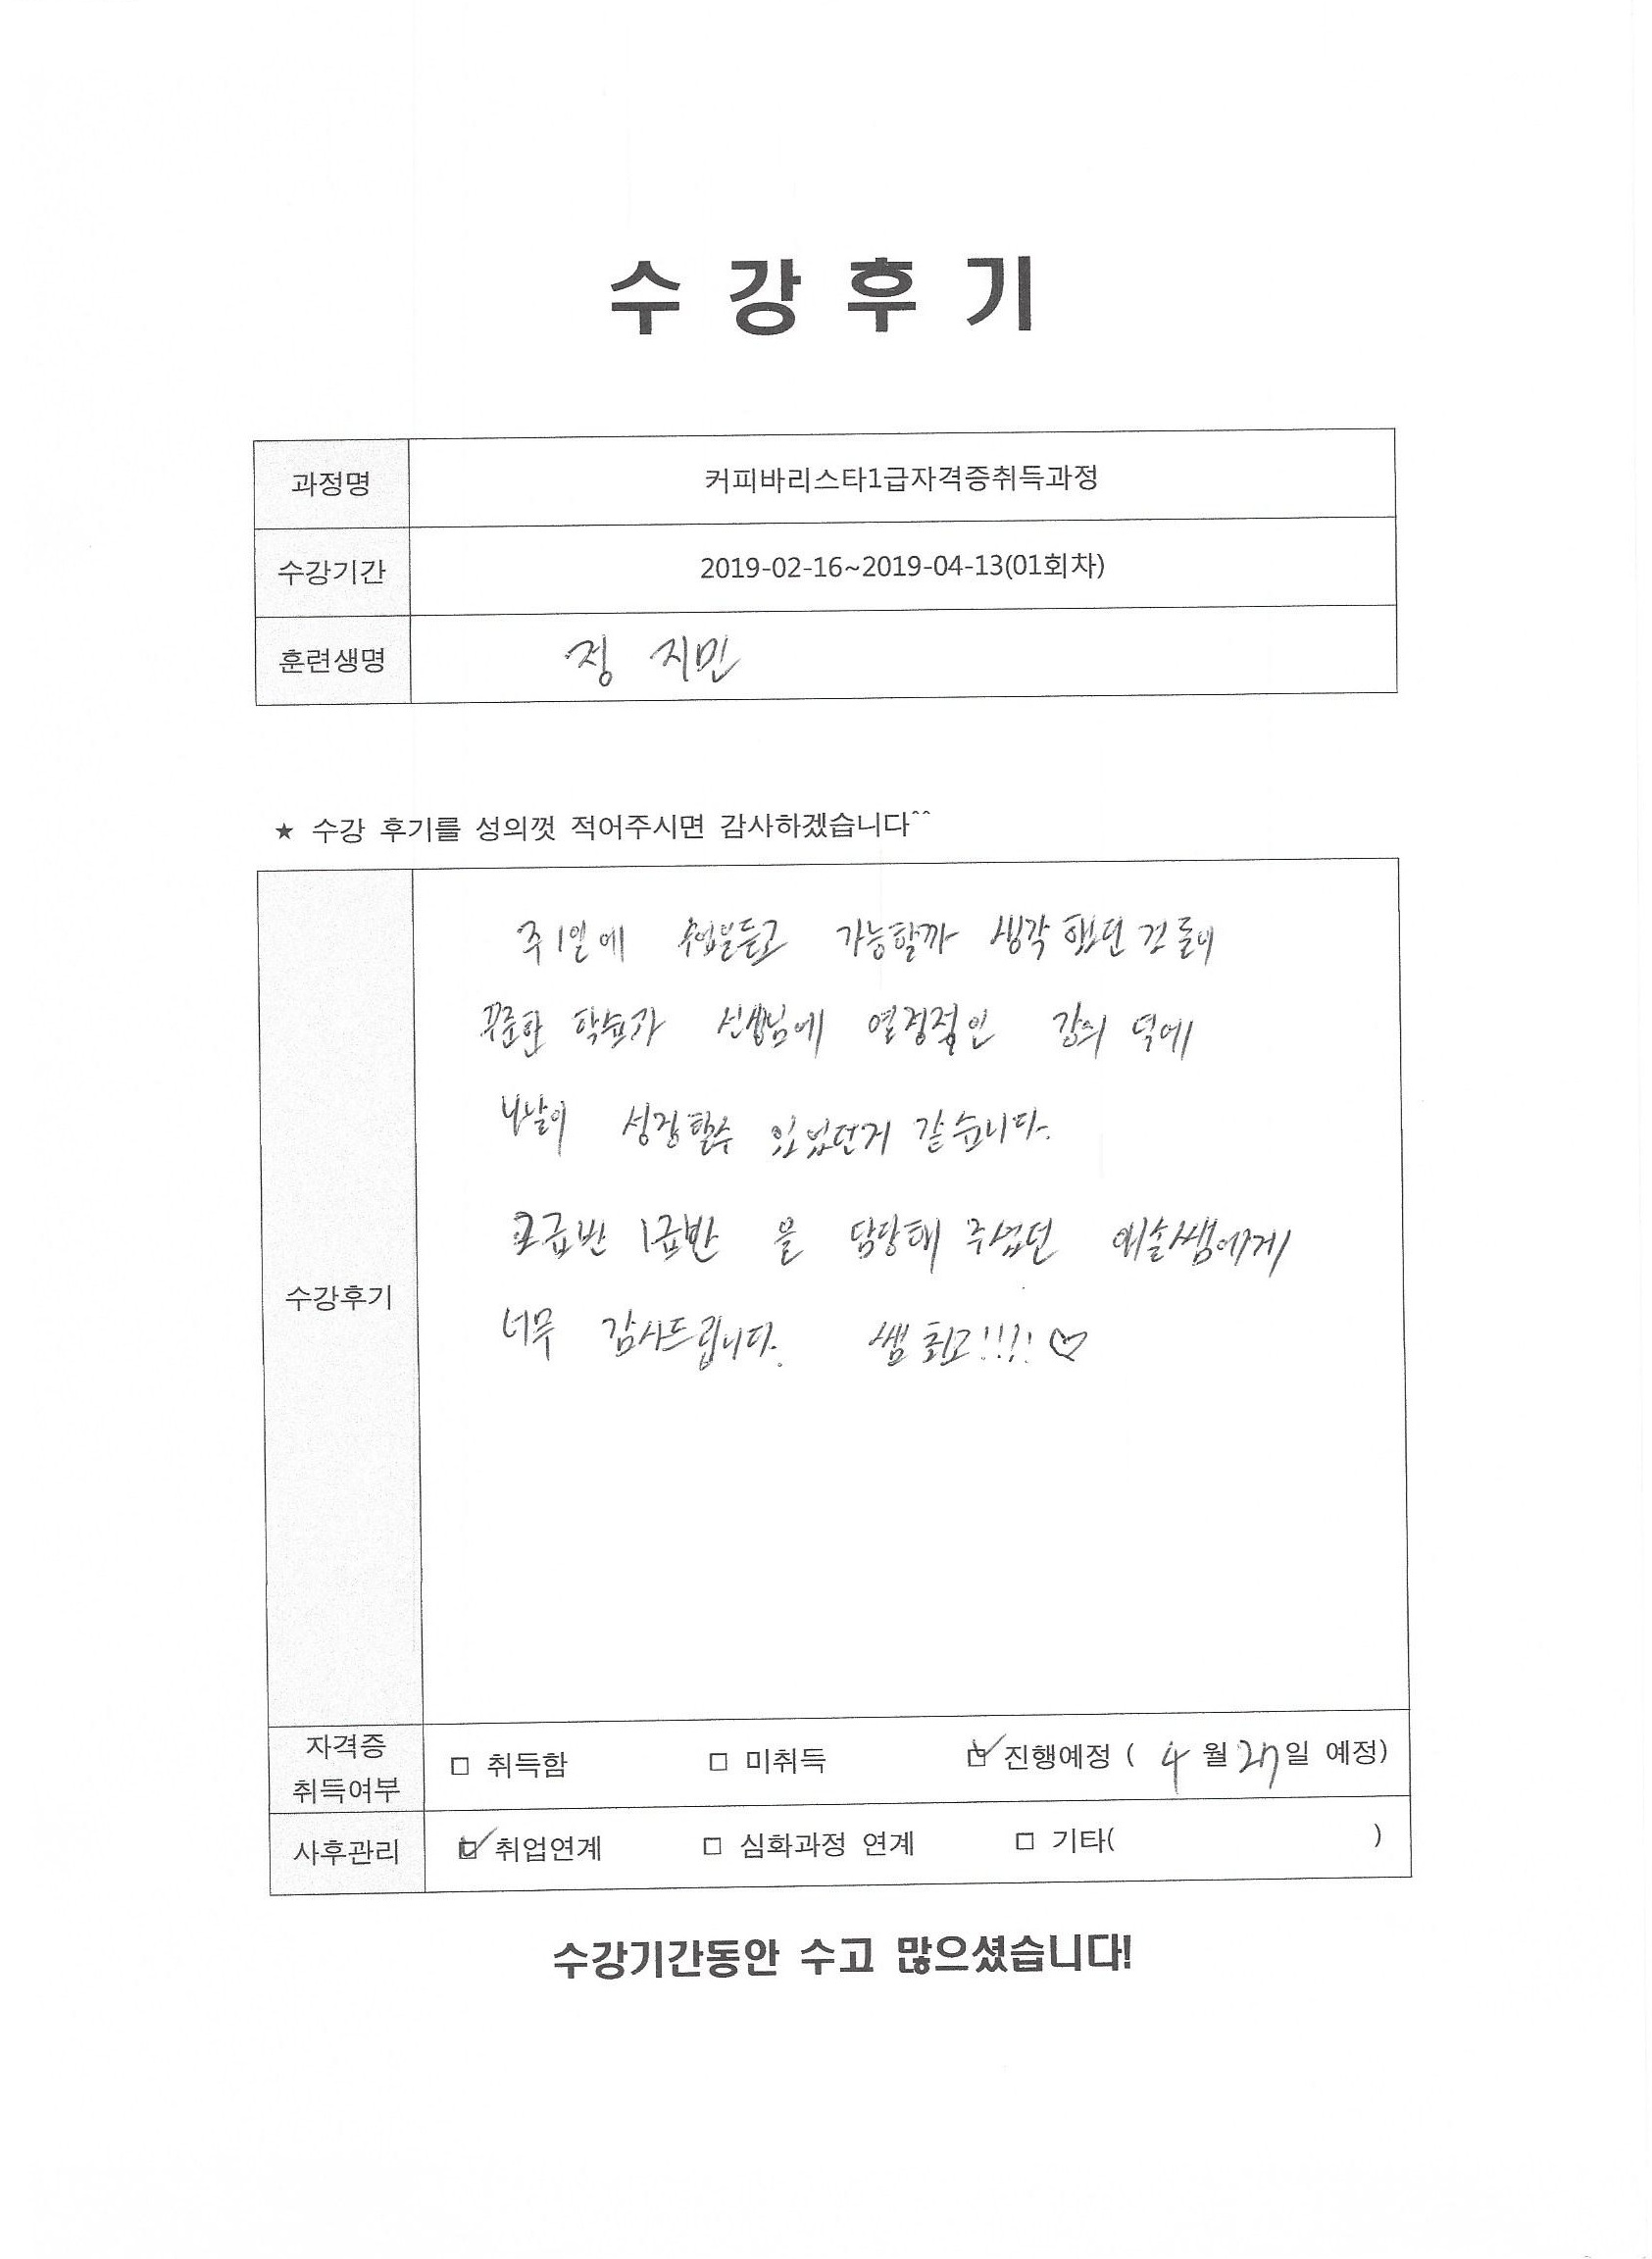 수 강 후 기
과정명 커피바리스타1급자격증취득과정
수강기간 2019-02-16~2019-04-13(01회차)
훈련생명 정 지민
★ 수강 후기를 성의껏 적어주시면 감사하겠습니다^^
수강후기
주 1일에 수업을듣고 가능할까 생각 했던
꾸준한 학습과 선생님에 열정적인 강의 덕에
나날이 성장할수 있었던거 같습니다.
2급반 1급반 을 담당해 주셨던 예솔쌤에게
너무 감사드립니다. 쌤 최고!!!! ♡
자격증 취득여부 □ 취득함 □ 미취득 ☑ 진행예정 ( 4 월 27 일 예정)
사후관리 ☑ 취업연계 □ 심화과정 연계 □ 기타( )
수강기간동안 수고 많으셨습니다!